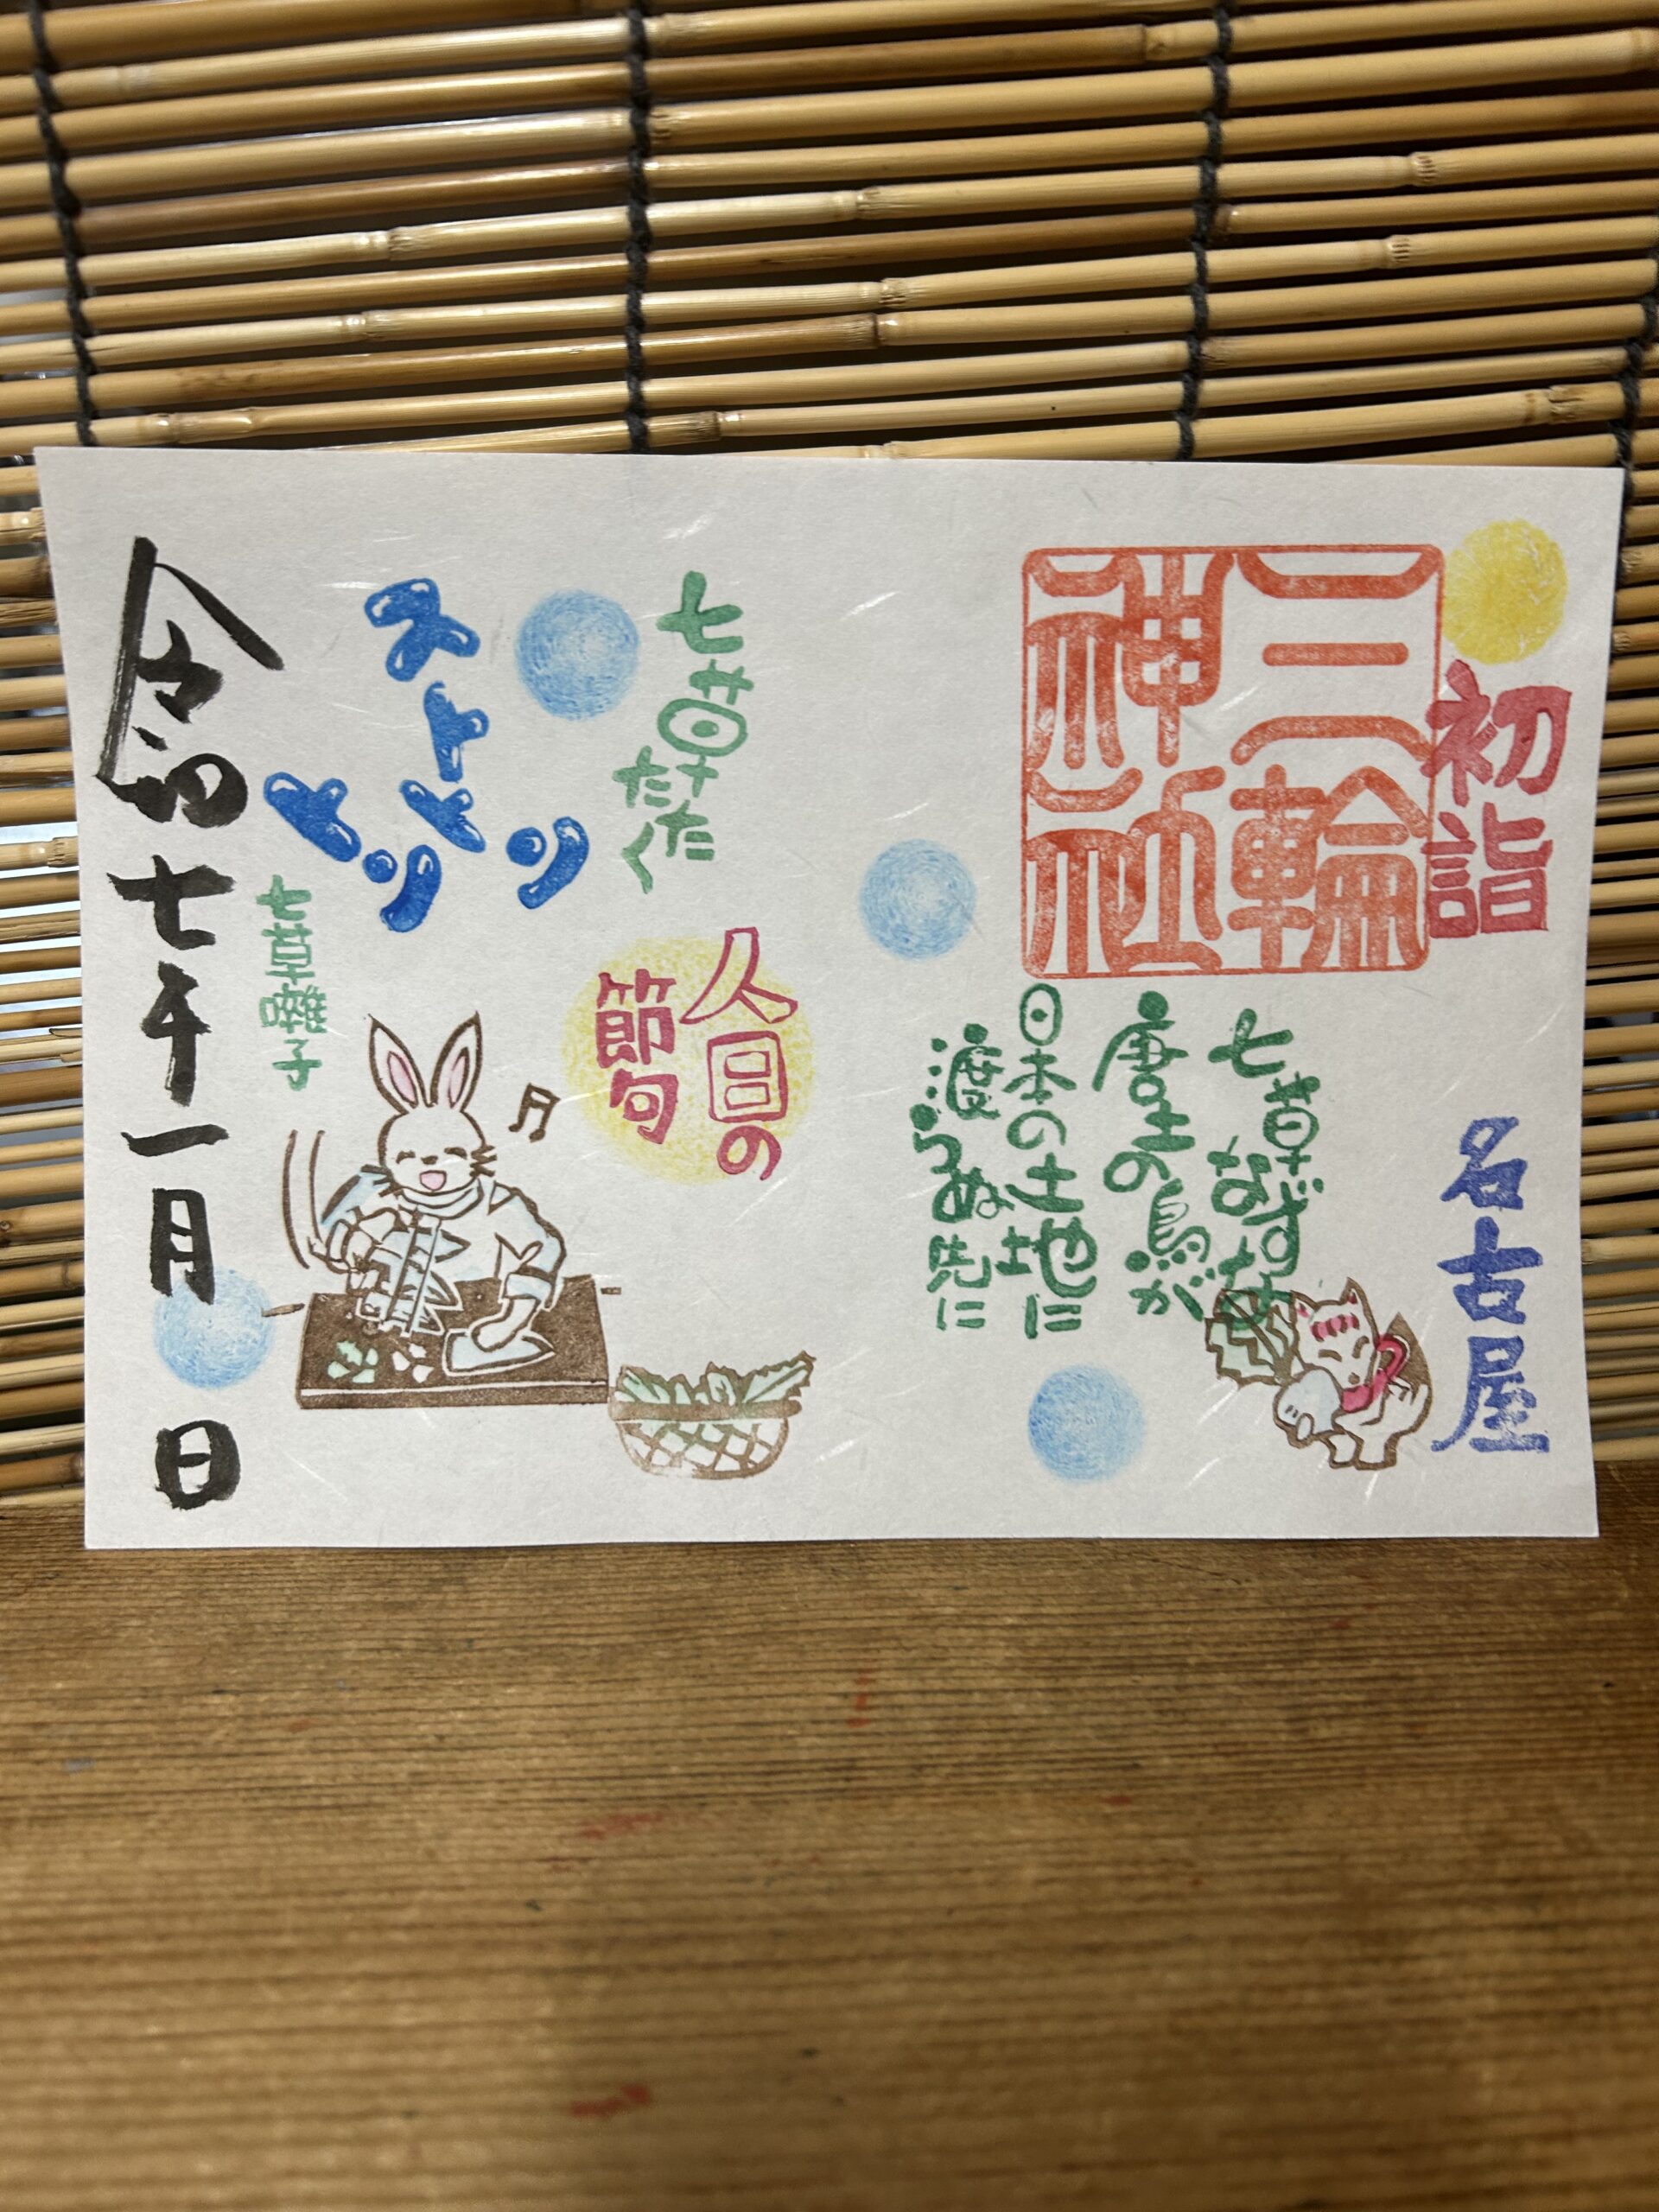 初詣
三輪
神社
名古屋
七草なずな
唐土の鳥が
日本の土地に
渡らぬ先に
七草
たたく
ストトン
トン
人日の
節句
七草囃子
令和七年一月 日